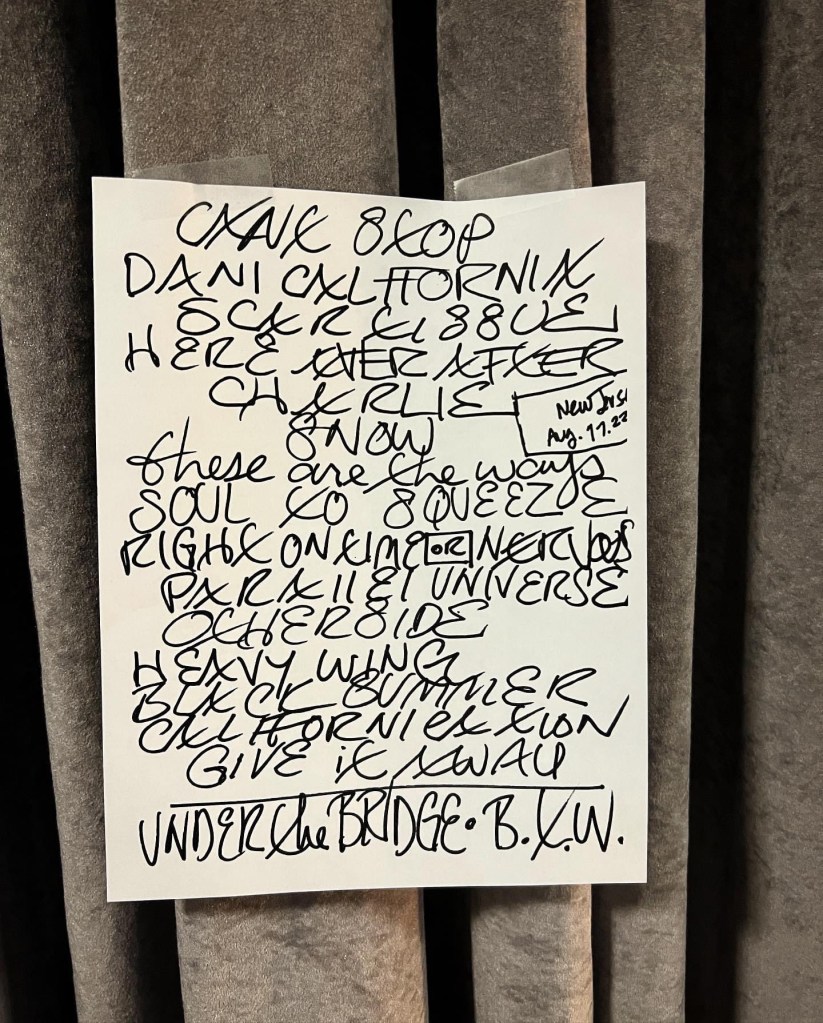 CAN'T STOP
DANI CALIFORNIA
SCAR TISSUE
HERE EVER AFTER
CHARLIE
New Jrs
Aug. 17.22
SNOW
these are the ways
SOUL TO SQUEEZE
RIGHT ON TIME OR NERVOUS
PARALLEL UNIVERSE
OTHERSIDE
HEAVY WING
BLACK SUMMER
CALIFORNICATION
GIVE it AWAY
UNDER the BRIDGE • B.T.W.